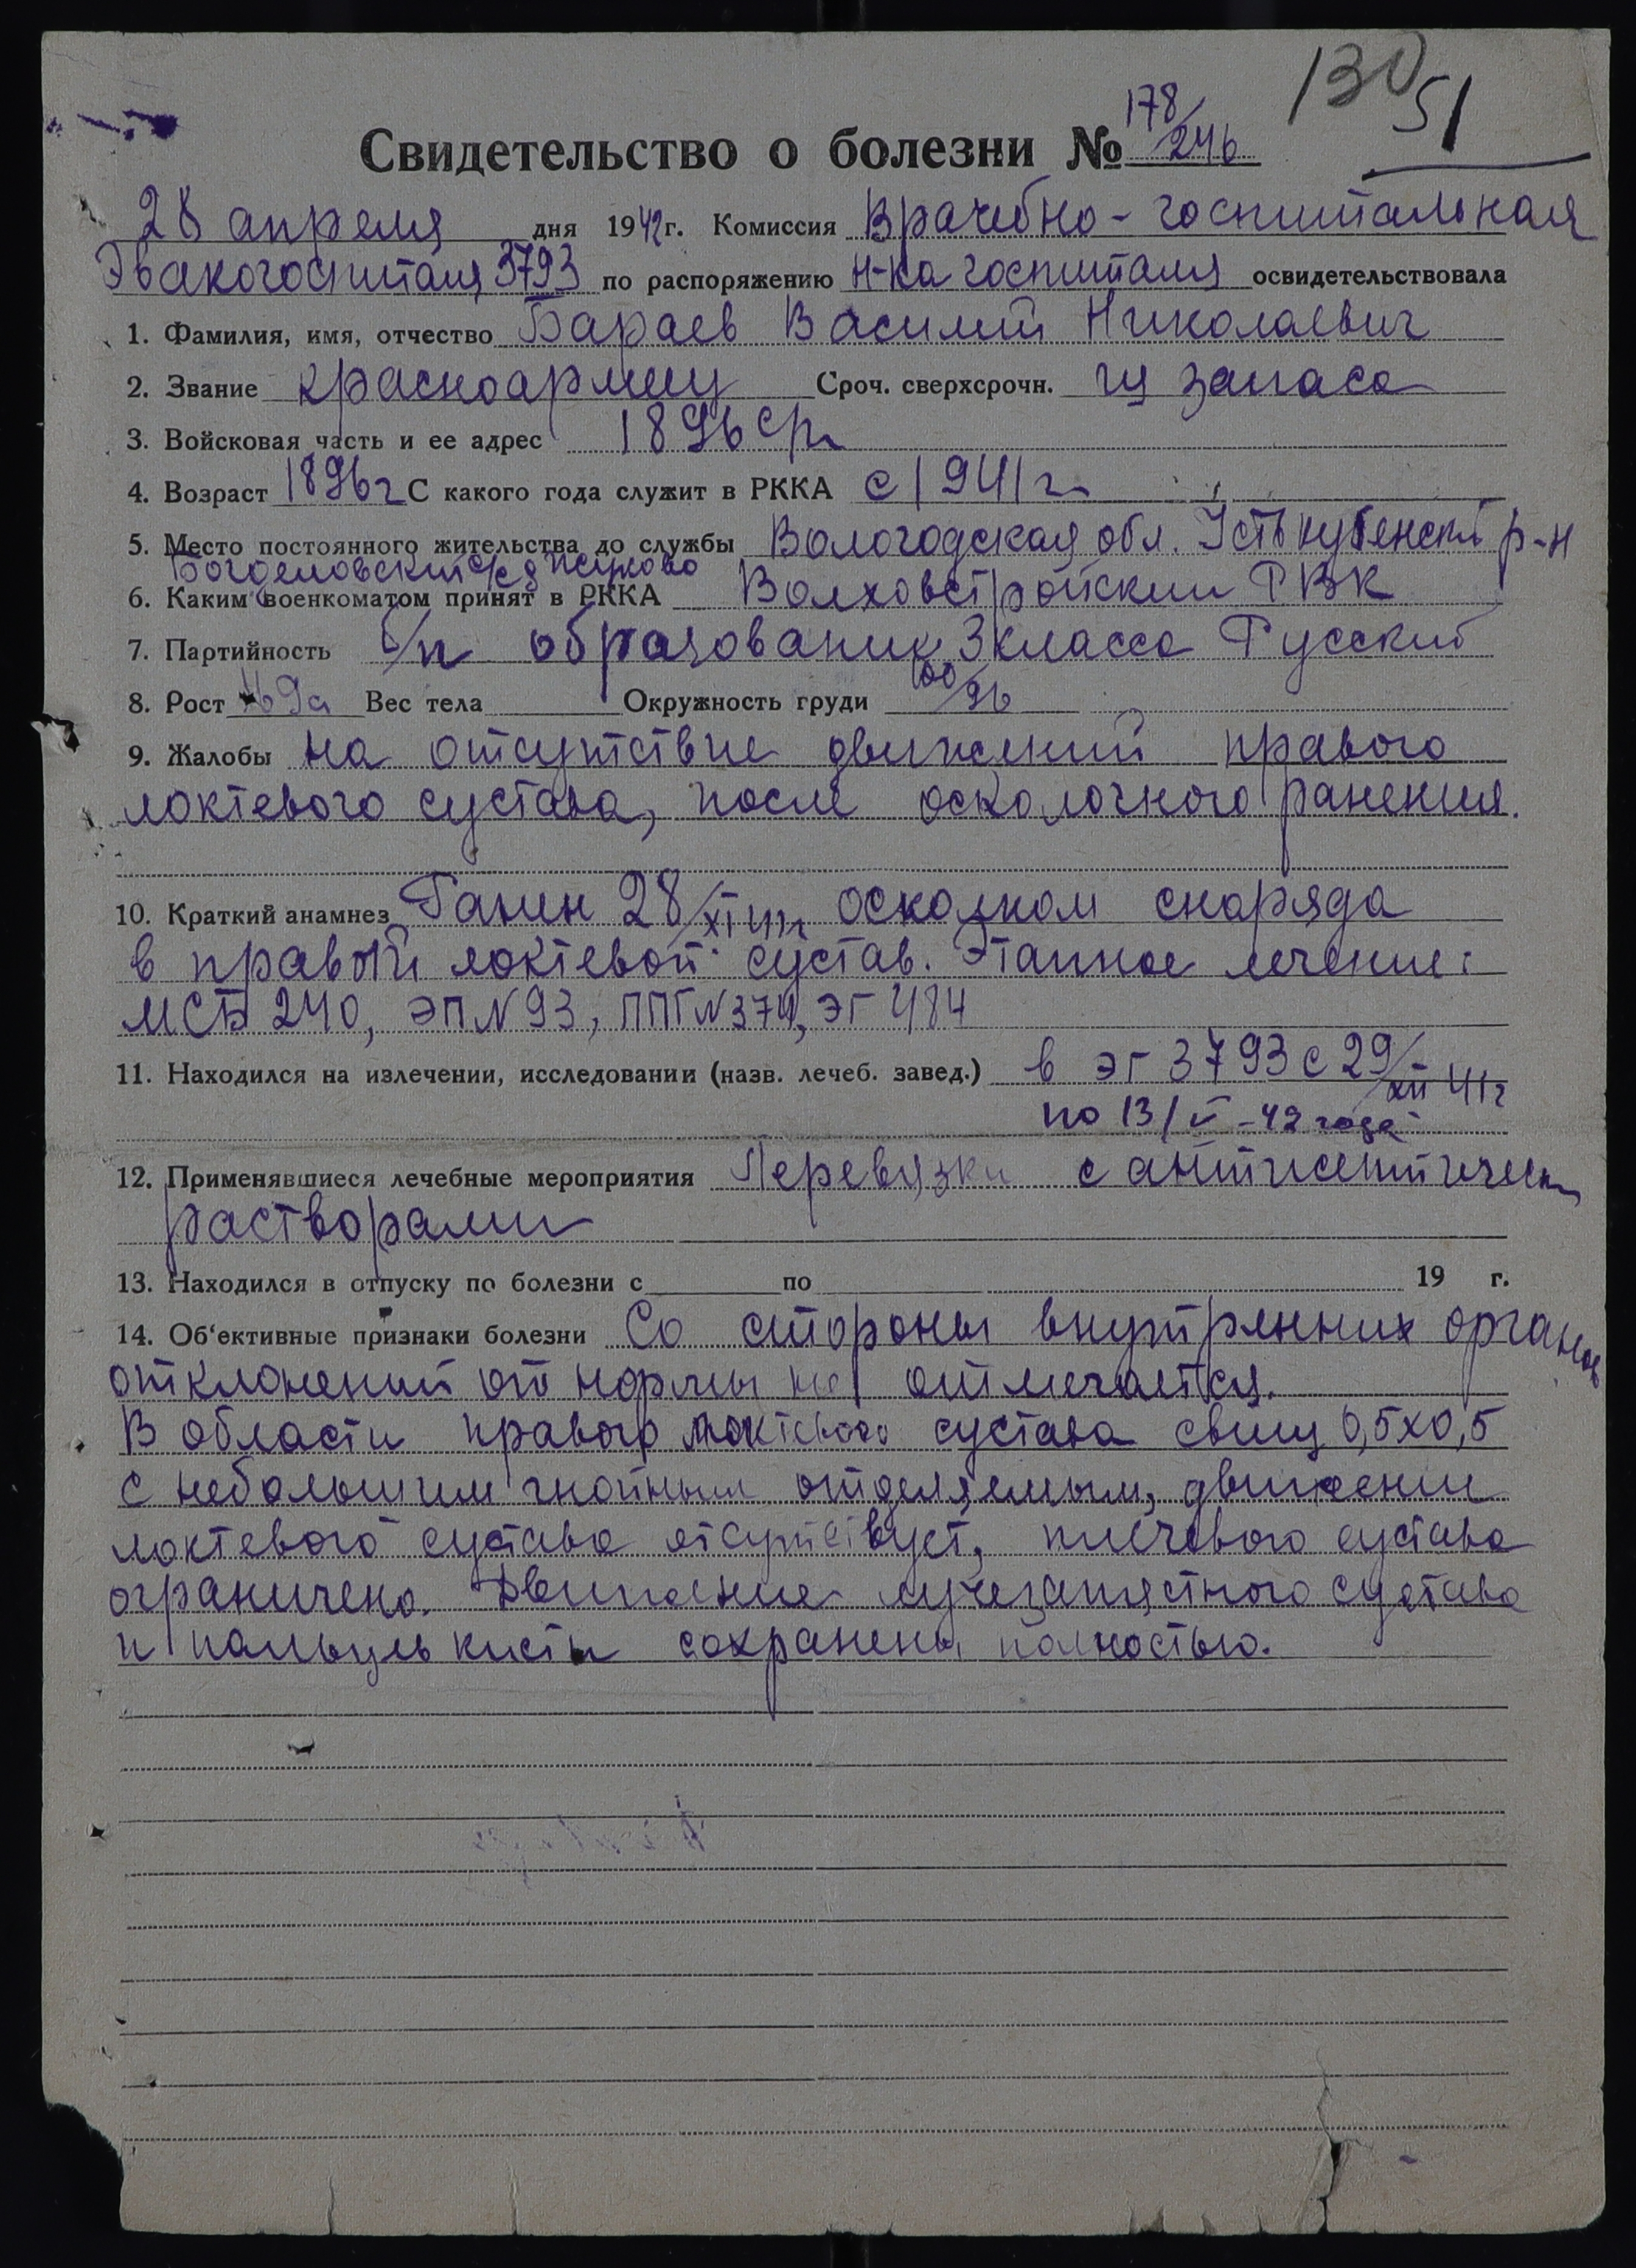 130
51
178/
Свидетельство о болезни № 246
28 апреля дня 1942г. Комиссия Врачебно-госпитальная
Эвакогоспиталя 3793 по распоряжению Н-ка госпиталя освидетельствовала
1. Фамилия, имя, отчество Бараев Василий Николаевич
2. Звание красноармеец Сроч. сверхсрочн. из запаса
3. Войсковая часть и ее адрес 1896 ср.
4. Возраст 1896г С какого года служит в РККА с 1941г.
5. Место постоянного жительства до службы Вологодская обл. Устькубенский р-н
с/с д
6. Каким военкоматом принят в РККА Волховстройским РВК
7. Партийность б/п образование 3 класса Русский
8. Рост 169 Вес тела Окружность груди 100/96
9. Жалобы на отсутствие движений правого
локтевого сустава, после осколочного ранения.
10. Краткий анамнез Ранен 28/XI 41г. осколком снаряда
в правый локтевой сустав. Этапное лечение:
МСБ 240, ЭП N 93, ППГ N 379, ЭГ 484
11. Находился на излечении, исследовании (назв. лечеб. завед.) в ЭГ 3793 с 29/XII 41г
по 13/V-42 года
12. Применявшиеся лечебные мероприятия Перевязки с антисептическ
растворами
13. Находился в отпуску по болезни с по 19 г.
14. Об'ективные признаки болезни Со стороны внутренних органов
отклонений от нормы не отмечается.
В области правого локтевого сустава свищ 0,5х0,5
с небольшим гнойным отделяемым, движении
локтевого сустава отсутствует, плечевого сустава
ограничено. Движение лучезапястного сустава
и пальцев кисти сохранены полностью.